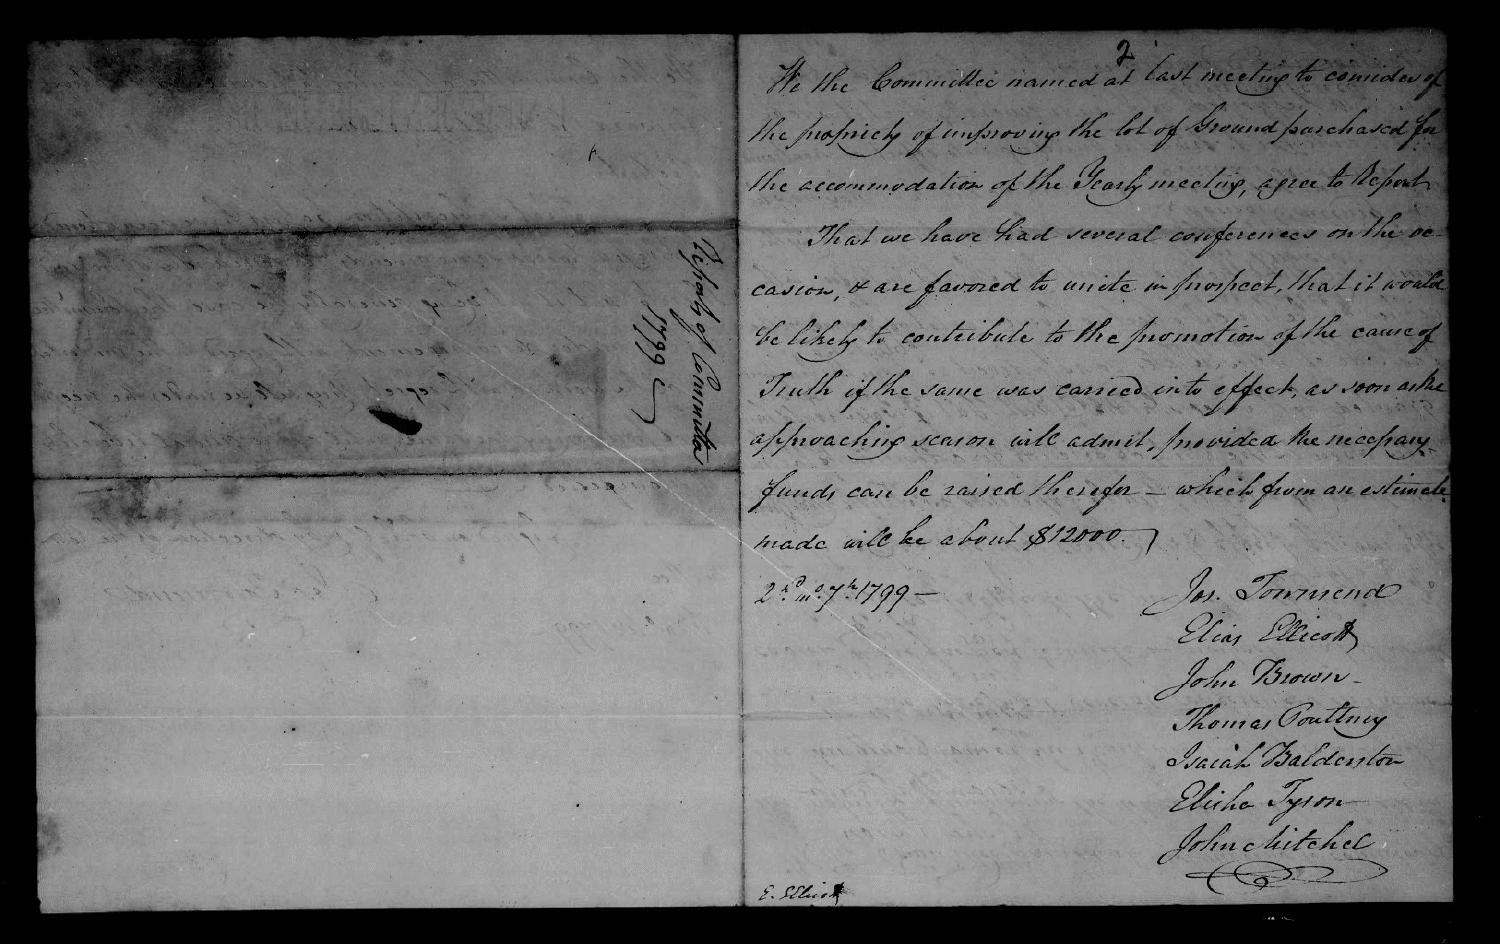 Report of Committee
1799
2
We the Committee named at last meeting to consider of
the propriety of improving the lot of Ground purchased for
the accommodation of the Yearly meeting, agree to Report
That we have had several conferences on the oc-
casion, & are favored to unite in prospect, that it would
be likely to contribute to the promotion of the cause of
Truth if the same was carried into effect, as soon as the
approaching season will admit, provided the necessary
funds can be raised therefor — which from an estimate
made will be about $12000.
2d. mo. 7th. 1799 —
Jos. Townsend
Elias Ellicott
John Brown
Thomas Poultney
Isaiah Balderston
Elisha Tyson
John Mitchel
E. Ellicott